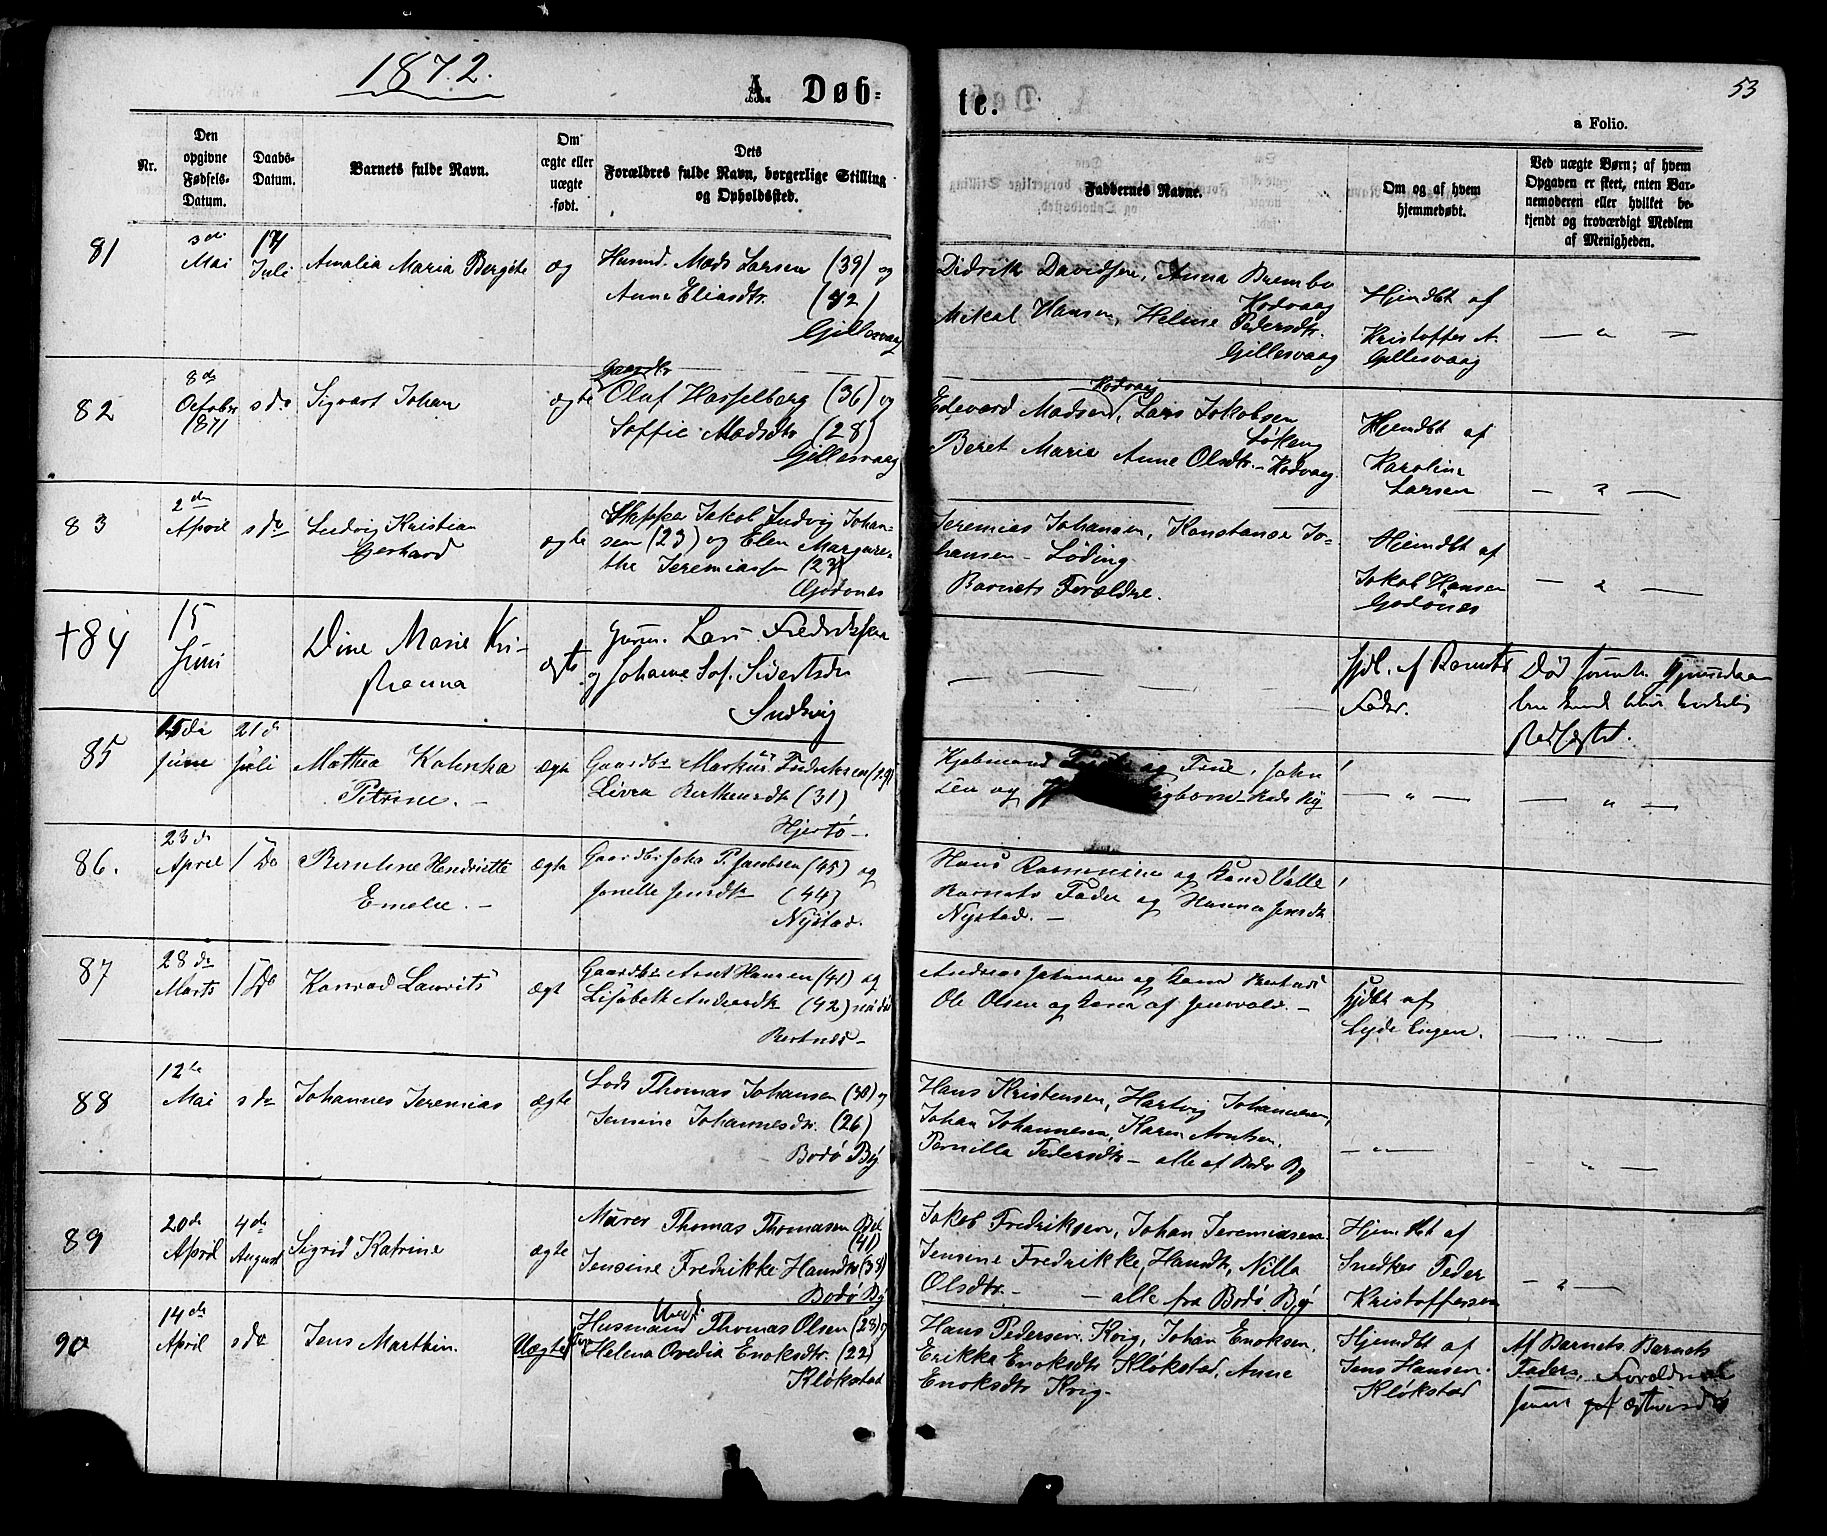 1872.
A Døb-
te.
53
a Folio.
Nr.
Den
opgivne
Fødsels-
Datum.
Daabs-
Datum.
Barnets fulde Navn.
Om
ægte eller
uægte
født.
Dets
Forældres fulde Navn, borgerlige Stilling
og Opholdssted.
Faddernes Navne.
Om og af hvem
hjemmedøbt.
Ved uægte Børn; af hvem
Opgaven er skeet, enten Bar-
nemoderen eller hvilket be-
kjendt og troværdigt Medlem
af Menigheden.
81
3die
Mai
Juli
Amalia Maria Bergite
æg
Husmd. Mads Larsen (39) og
Anne Eliasdtr.
Gillesvaag
Didrik Davidsen, Anna Brembo
Kodvaag
Mikal Hansen, Helene Pedersdtr.
Gillesvaag
Hjemdbt af
Kristoffer A.
Gillesvaag
— " —
82
8de
Octobr
1871
s do
Sigvart Johan
ægte
Gaardbr
Oluf Hasselberg (36) og
Soffie Madsdtr (28)
Gillesvaag
Kodvaag
Edevard Madsen, Lars Jakobsen
Løkeng
Beret Marie Anne Olsdtr. - Kodvaag
Hjemdbt af
Karoline
Larsen
— " —
83
2den
April
s do
Ludvig Kristian
Gerhard
ægte
Jakob Ludvig Johan-
sen (23) og Elen Margare-
the Jeremiassn (23)
Godønes
Jeremias Johansen, Konstanse Jo-
hansen - Løding.
Barnets Forældre.
Hjemdbt af
Jakob Hansen
Godønes
— " —
+84
15
Juni
Dine Marie Kri-
stianna
ægte
Lars Fredriksen
og Johanna Sof. Sivertsdr
— — — —
af Barnets
Fader.
Død
stadfæstet.
85
15de
June
21de
Juli
Mathea Kalinka
Petrine. -
ægte
Gaardbr Markus Fredriksen (29)
Livea Berthensdtr (31)
Hjertø -
og
— " —
— " —
86.
23de
April
1 Do
Berntine Hendriette
Emelie. -
ægte
Gaardbr Joha P. Jacobsen (45) og
Jonette Jensdtr (44)
Nystad.
Hans Rasmussen og Kone Valle
Barnets Fader og Hanna Jensdtr
Nystad. -
87
28de
Marts
1 Do
Konrad Laurits
ægte
Gaardbr Arnt Hansen (41) og
Lisabeth Andersdtr (42)
Bertnes -
Andreas Johansen og Kone Bertnes
Ole Olsen og Kone af Jensvold. -
Hjdbt af
Lyde Engen.
— " —
88
12te
Mai
s do
Johannes Jeremias
ægte
Lods Thomas Johansen (30) og
Jensine Johannesdtr. (26)
Bodø By
Hans Kristensen, Hartvig Johannesen,
Johan Johannesen, Karen Arntsen.
Pernilla Pedersdtr - alle af Bodø By
— " —
— " —
89
20de
April
4de
August
Sigrid Katrine
ægte
Murer Thomas Thomasen
(41)
Jensine Fredrikke Hansdtr (38)
Bodø By
Jakob Fredriksen, Johan Jeremiasen
Jensine Fredrikke Hansdtr, Nilla
Olsdtr. - - alle fra Bodø By
Hjemdbt af
Snedker Peder
Kristoffersen
— " —
90
14de
April
s do
Jens Marthin.
Uægte
Ungk.
Husmand Thomas Olsen (23) og
Helena Ovedia Enoksdtr. (22)
Kløkstad
Hans Pedersen Kvig, Johan Enoksen,
Erikka Enoksdtr Kløkstad, Anne
Enoksdtr Kvig.
Hjemdbt af
Jens Hansen.
Kløkstad
Af Barnets Barnets
Fader. Forældrene